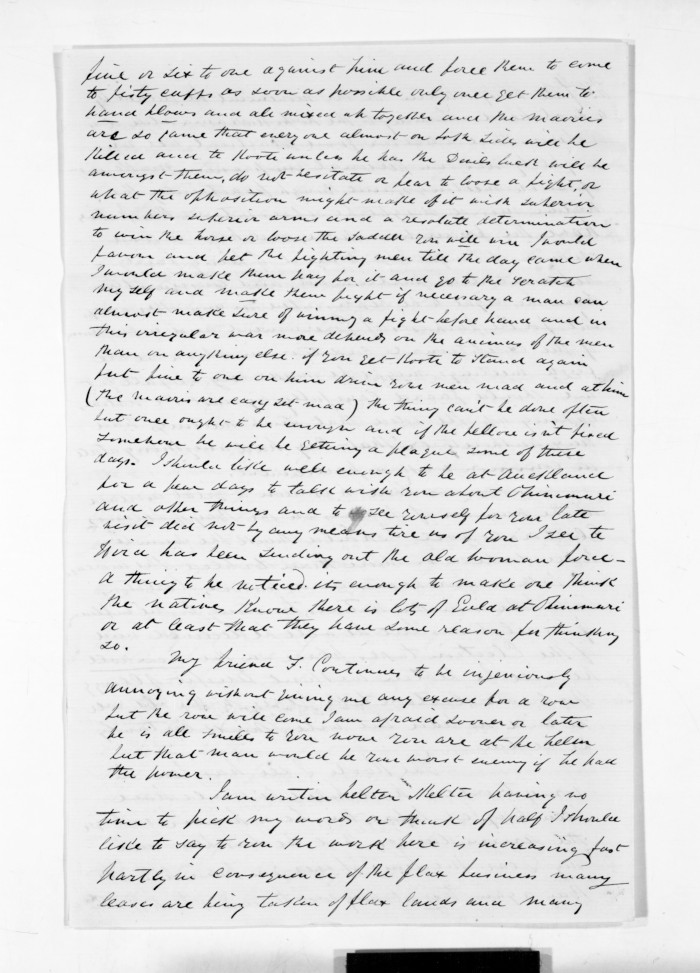 five or six to one against him and force them to come
to fisty cuffs as soon as possible only once get them to
hand blows and all mixed up together and the maories
are so game that everyone almost on both sides will be
killed and te Kooti unless he has the Devils luck will be
amongst them, do not hesitate or fear to loose a fight, or
what the opposition might make of it with superior
numbers superior arms and a resolute determination
to win the horse or loose the saddle you will win I would
favour and pet the fighting men till the day came when
I would make them pay for it and go to the scratch
my self and make them fight if necessary a man can
almost make sure of winning a fight before hand and in
this irregular war more depends on the animus of the men
than on anything else. if you get Kooti to stand again
put five to one on him drive your men mad and at him
(the maoris are easy set mad) the thing can't be done often
but once ought to be enough and if the fellow isn't fixed
somehow he will be getting a plague some of these
days. I should like well enough to be at Auckland
for a few days to talk with you about Ohinemuri
and other things and to see yourself for your late
visit did not by any means tire us of you I see te
Hira has been sending out the old woman force -
a thing to be noticed. its enough to make one think
the natives know there is lots of Gold at Ohinemuri
or at least that they have some reason for thinking
so.
My friend F. Continues to be ingeniously
annoying without giving me any excuse for a row
but the row will come I am afraid sooner or later
he is all smiles to you now you are at the helm
but that man would be your worst enemy if he had
the power.
I am writin helter Skelter having no
time to pick my words or think of half I should
like to say to you the work here is increasing fast
partly in consequence of the flax business many
leases are being taken of flax lands and many